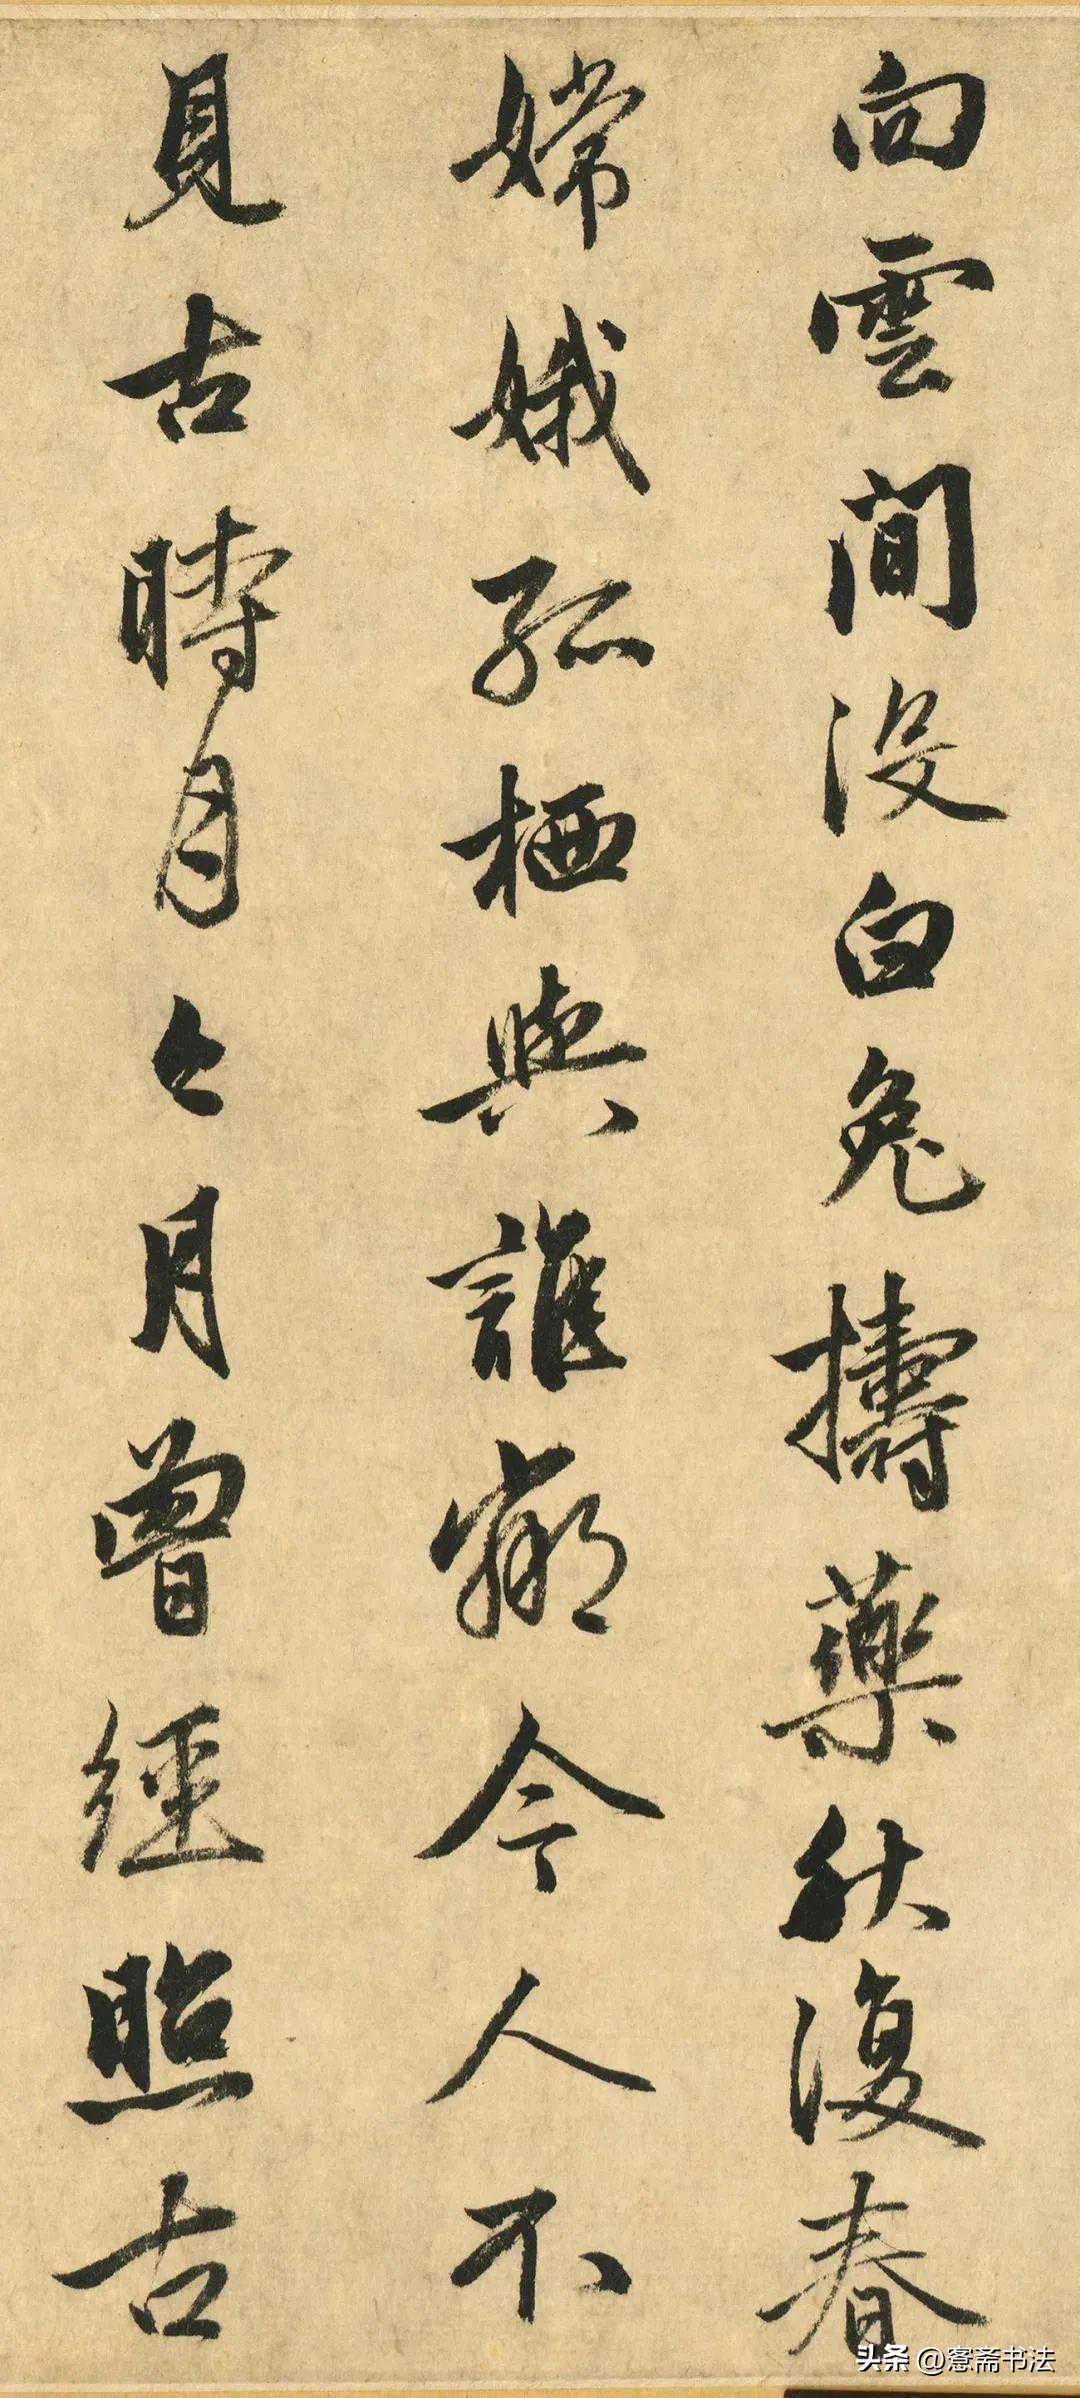 向雲間沒白兔擣藥秋復春
嫦娥孤栖與誰鄰今人不
見古時月令月曾經照古
头条 @窓斋书法